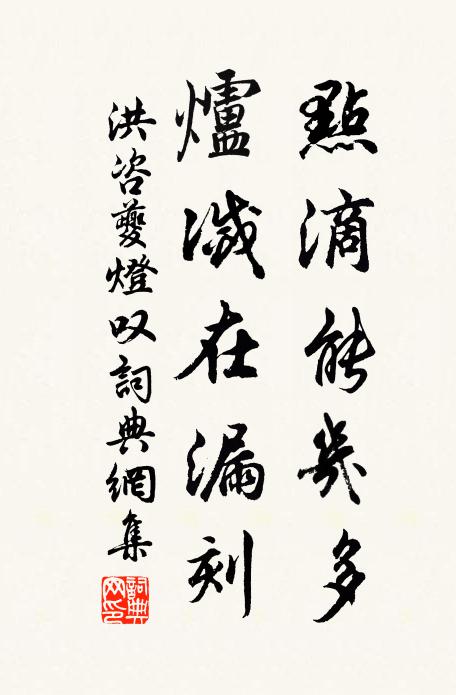 點滴能幾多
爐滅在漏刻
洪咨夔燈叹詞典網集
詞典網印